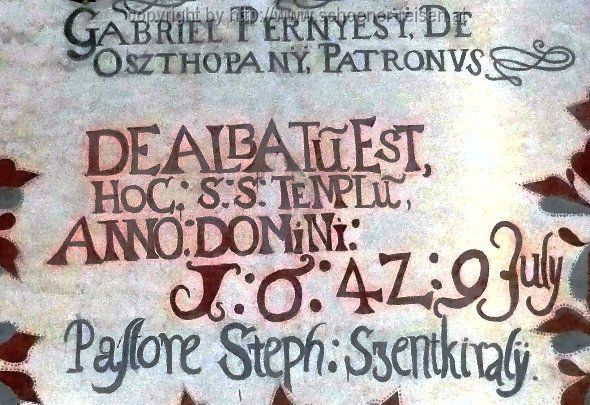 copyright by http://www.schoener-reisen.at
GABRIEL PERNYEST, DE
OSZTHOPANÿ, PATRONVS
DEALBATŪ EST,
HOC: S: S: TEMPLŪ,
ANNO: DOMiNi:
J: 6: 4Z: 9 July
Paſtore Steph: Szentkiralÿ.